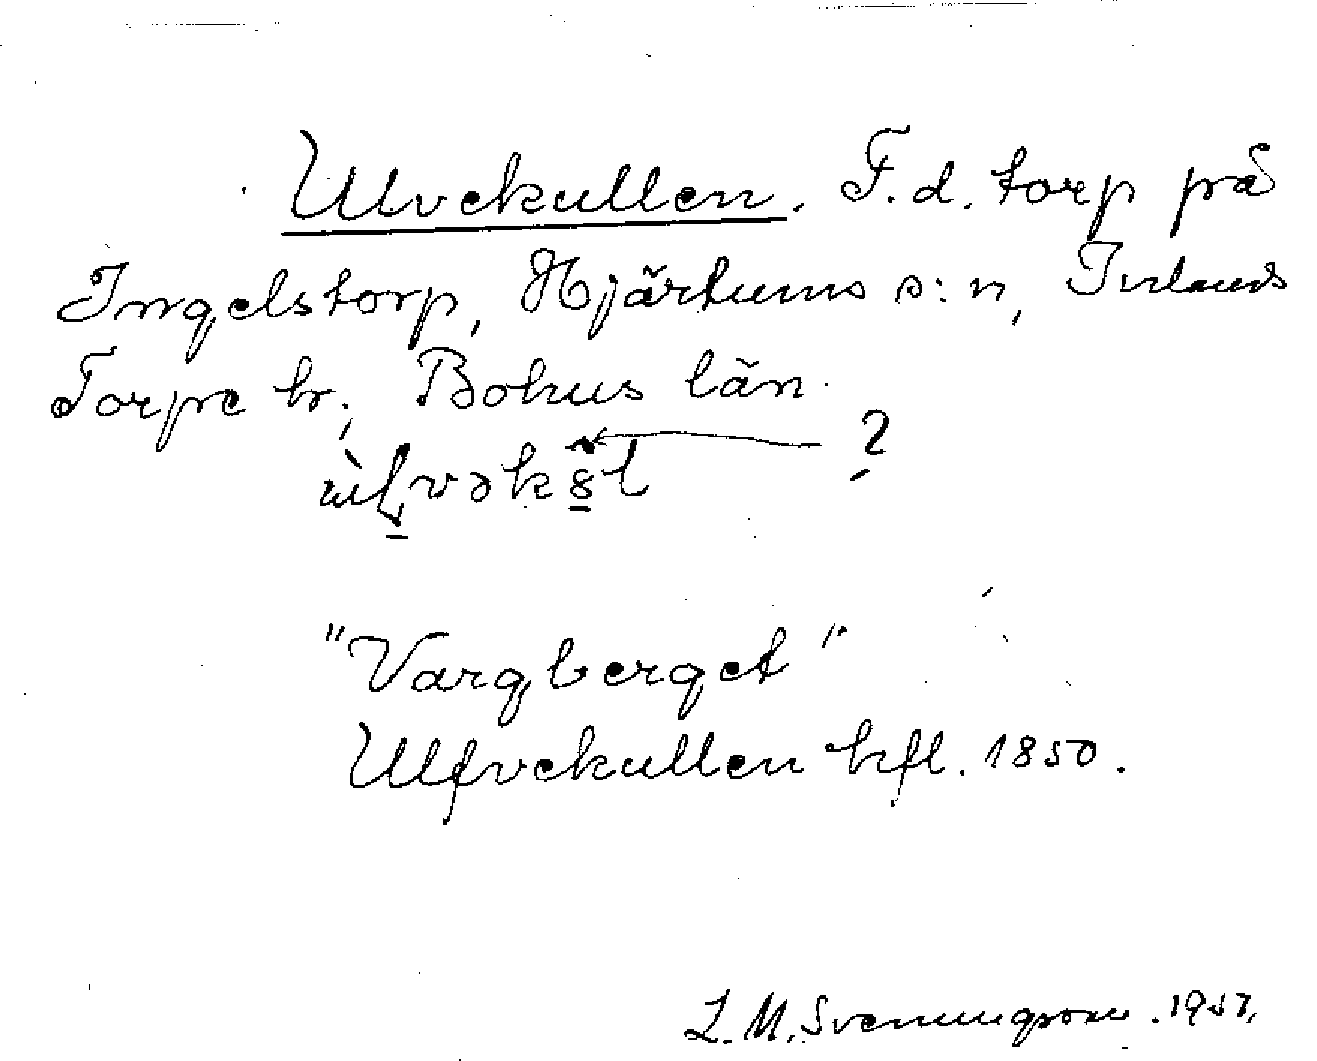 Ulvekullen. F.d. torp på
Ingelstorp, Hjärtums s:n, Inlands
Torpe hr., Bohus län.
?
"Vargberget"
Ulfvekullen hfl. 1850.
L. M. Svenungsson. 1957.